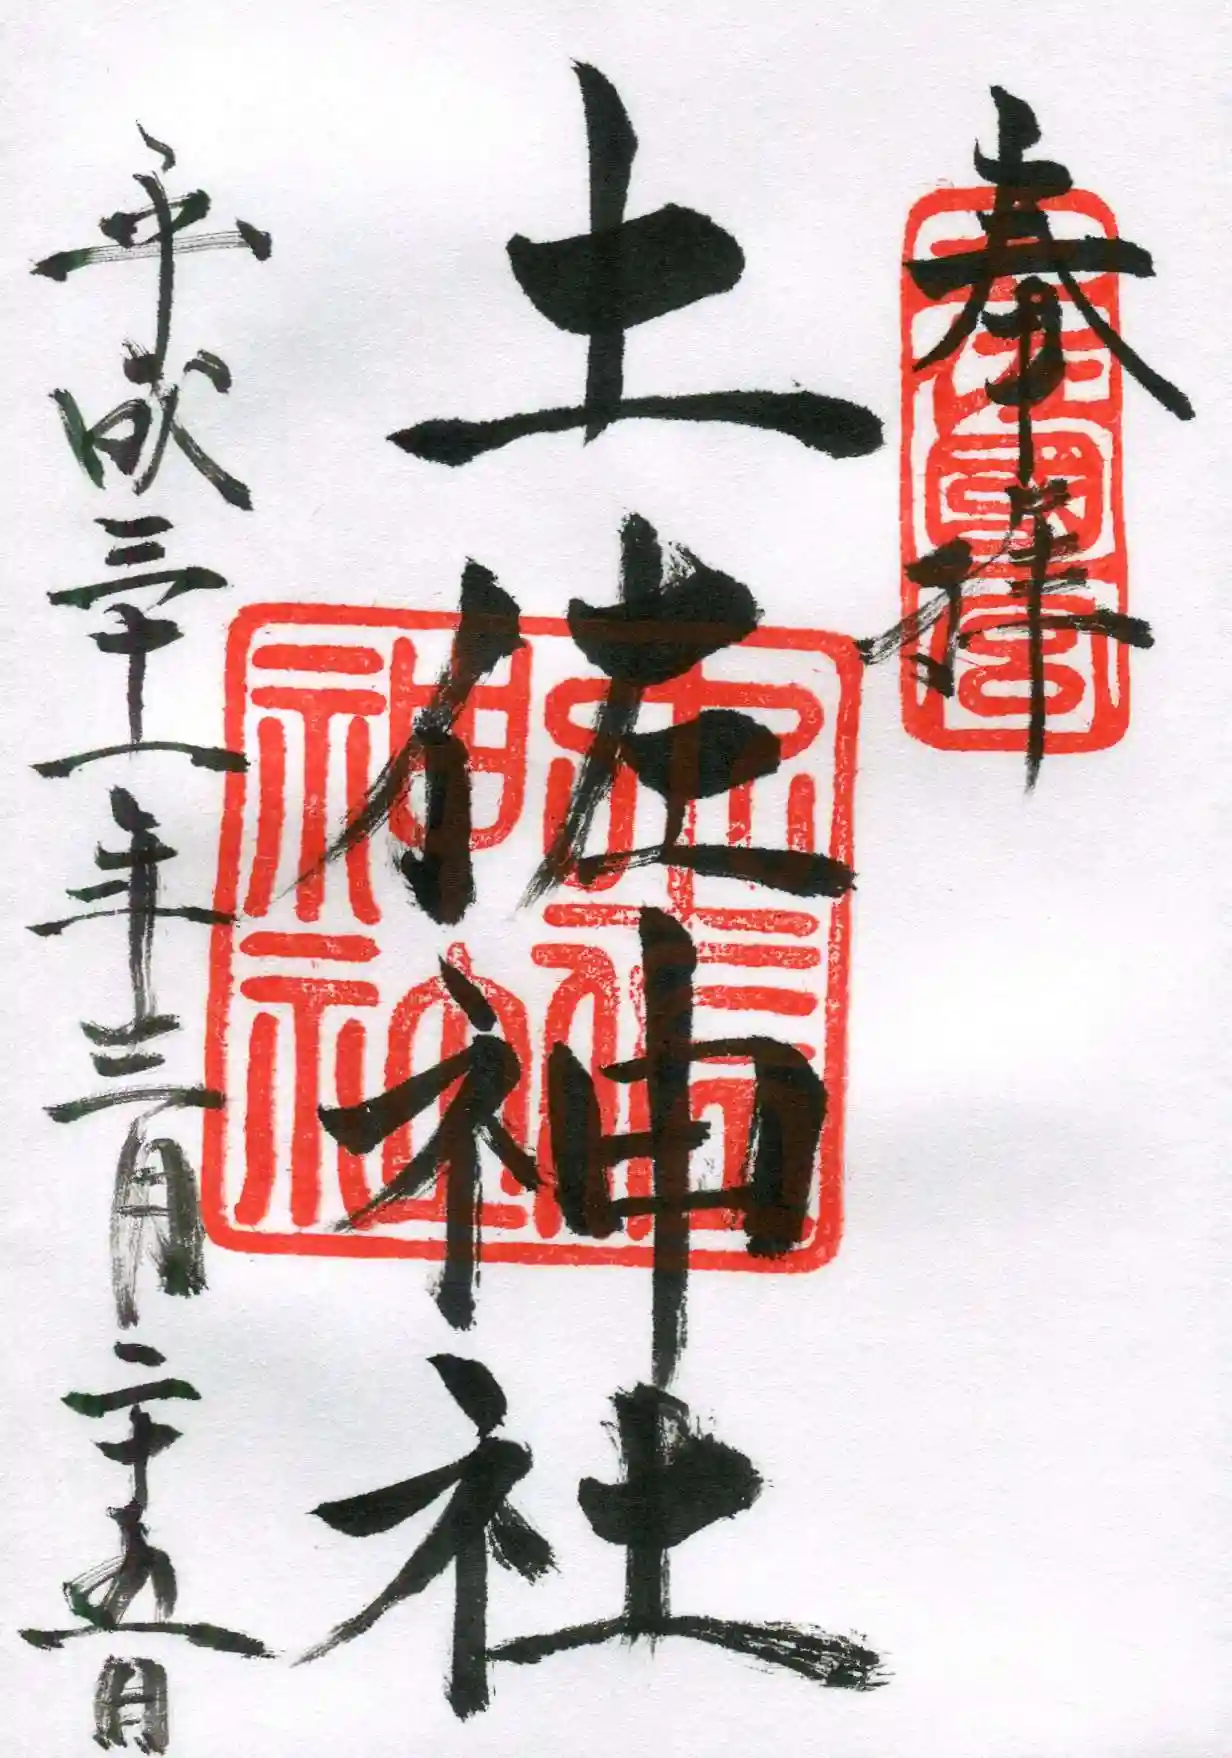 奉拝
土佐神社
平成三十一年三月二十五日